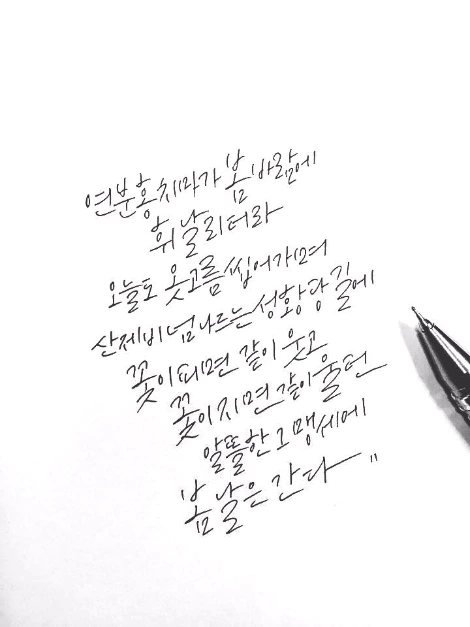 연분홍 치마가 봄바람에
휘날리더라
오늘도 옷고름 씹어가며
산제비 넘나드는 성황당 길에
꽃이 피면 같이 웃고
꽃이 지면 같이 울던
알뜰한 그 맹세에
봄날은 간다"